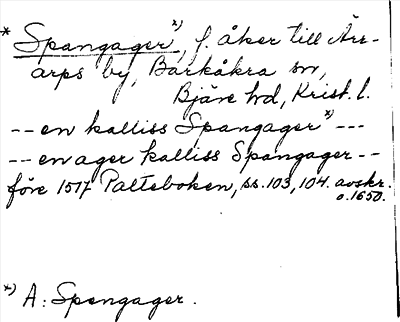 * Spangager *), f. åker till Ärr-
arps by, Barkåkra sn,
Bjäre hd, Krist. l.
-- en kalliss Spangager *) ---
-- en ager kalliss Spangager --
före 1517 Palteboken, ss. 103, 104. avskr.
o. 1650.
*) A: Spengager.